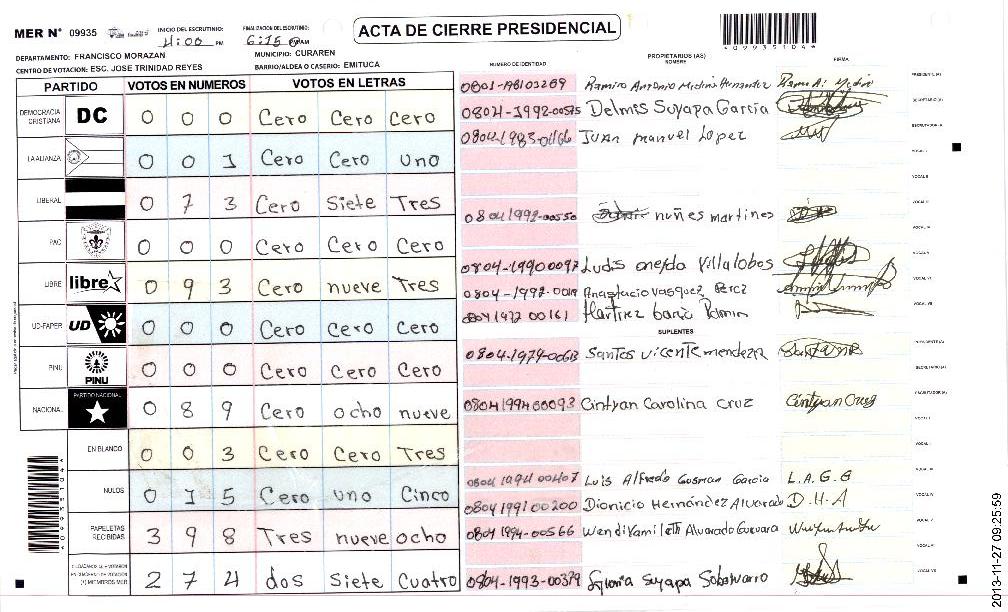 MER N° 09935
INICIO DEL ESCRUTINIO: 4:00 PM
FINALIZACION DEL ESCRUTINIO: 6:15 AM
ACTA DE CIERRE PRESIDENCIAL
*09935104*
DEPARTAMENTO: FRANCISCO MORAZAN
MUNICIPIO: CURAREN
CENTRO DE VOTACION: ESC. JOSE TRINIDAD REYES
BARRIO/ALDEA O CASERIO: EMITUCA
PARTIDO VOTOS EN NUMEROS VOTOS EN LETRAS
DEMOCRACIA CRISTIANA DC 0 0 0 Cero Cero Cero
LA ALIANZA 0 0 1 Cero Cero uno
LIBERAL 0 7 3 Cero Siete Tres
PAC 0 0 0 Cero Cero Cero
LIBRE libre 0 9 3 Cero nueve Tres
UD-FAPER UD 0 0 0 Cero Cero Cero
PINU PINU 0 0 0 Cero Cero Cero
NACIONAL PARTIDO NACIONAL 0 8 9 Cero ocho nueve
EN BLANCO 0 0 3 Cero Cero Tres
NULOS 0 1 5 Cero uno Cinco
PAPELETAS RECIBIDAS 3 9 8 Tres nueve ocho
2 7 4 dos Siete Cuatro
NUMERO DE IDENTIDAD
PROPIETARIOS (AS)
NOMBRE
FIRMA
Ramiro Antonio Medina Hernandez
PRESIDENTE (A)
0804-1992-00575 Delmis Suyapa Garcia
SECRETARIO (A)
Juan manuel Lopez
ESCRUTADOR-A
08041992-00550 nuñes martines
0804-19900097 Ludis Villalobos
Anastacio Vasquez Perez
0804 1972 00161
SUPLENTES
Santos Vicente mendeza
PRESIDENTE (A)
SECRETARIO (A)
0804199400093 Cintyan Carolina Cruz Cintyan Cruz
ESCRUTADOR (A)
Luis Alfredo Gusman Garcia L.A.G.G
0804199100200 Dionicio Hernández Alvarado D.H.A
0804 1994-00566 Wendi Yamileth Alvarado Guevara
0804-1993-00379 Gloria Suyapa
*09935104*
2013-11-27 09:25:59